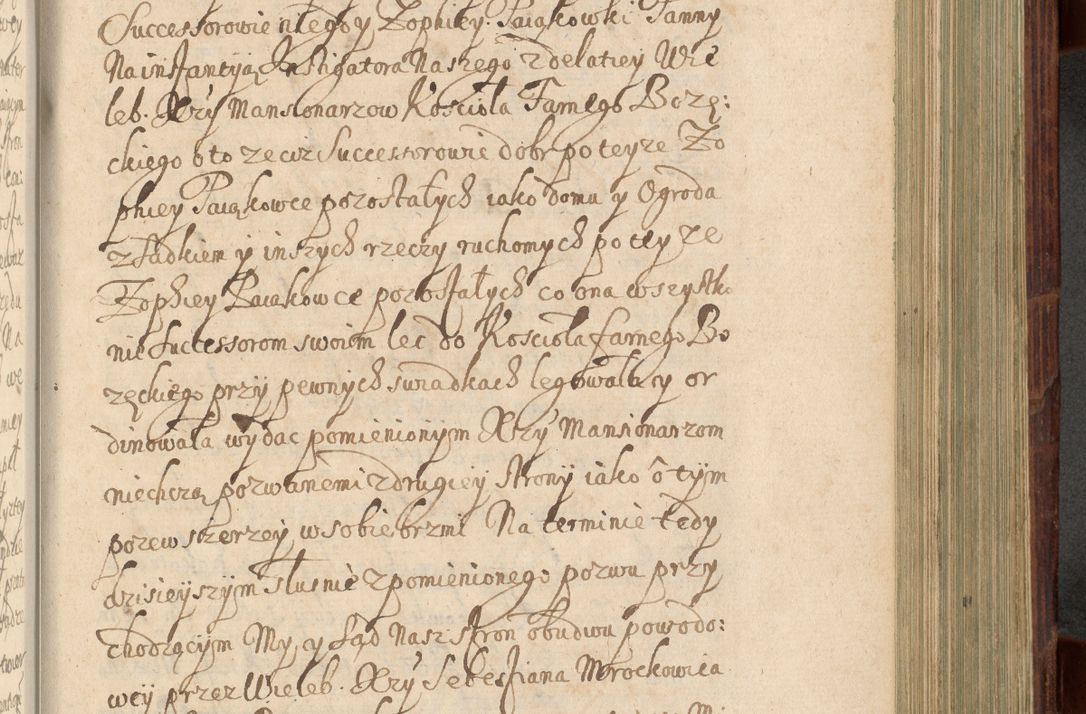 Successorowie niegdy Zophiey Paiąkowki Panny
Na instantyą Instigatora Naszego z delatiey Wie
leb. Xrzy Mansionarzow Kościoła Farnego Bozę:
ckiego oto ze ciz Successorowie dobr po teyze Zo
phiey Paiąkowce pozostałych iako domu y Ogroda
z Sadkiem y inszych rzeczy ruchomych po tey ze
Zophiey Paiakowce pozostałych co ona wszystko
nie Successorom swoim lec do Kościoła farnego Bo
zęckiego przy pewnych swiadkach legowała y or
dinowała wydac pomienionym Xrzy Mansionarzom
niechcą pozwanemi z drugiey strony iako o tym
pozew szerzey w sobie brzmi Na terminie tedy
dzisieyszym słusnie z pomienionego pozwu przy
chodzącym My y Sąd Nasz stron obudwu powodo:
wey przez Wieleb. Xrzy Sebestiana Mrockowica